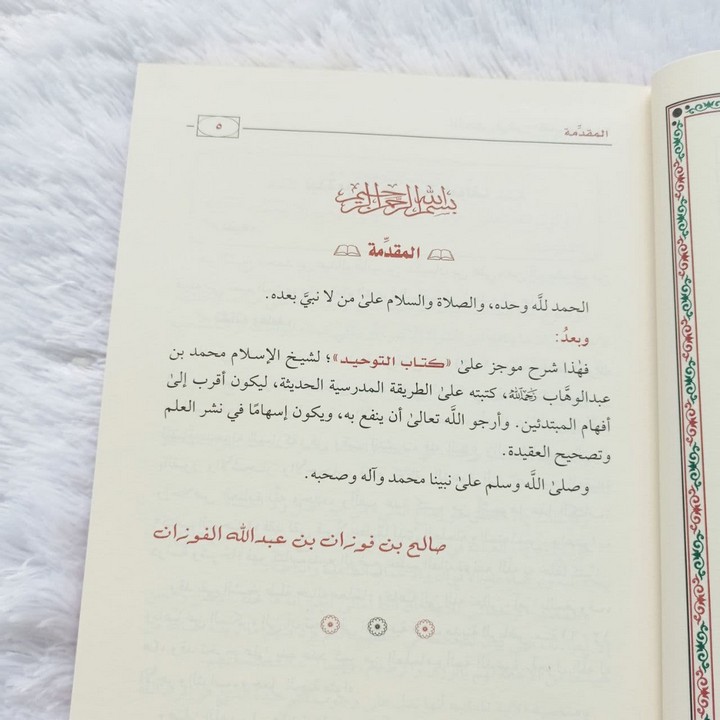 المقدِّمة
٥
بسم الله الرحمن الرحيم
المقدِّمة
الحمد للَّه وحده، والصلاة والسلام علىٰ من لا نبيَّ بعده.
وبعدُ:
فهٰذا شرح موجز علىٰ «كتاب التوحيد»؛ لشيخ الإسلام محمد بن
عبدالوهَّاب رَحِمَهُ اللَّهُ، كتبته علىٰ الطريقة المدرسية الحديثة، ليكون أقرب إلىٰ
أفهام المبتدئين. وأرجو اللَّه تعالىٰ أن ينفع به، ويكون إسهامًا في نشر العلم
وتصحيح العقيدة.
وصلىٰ اللَّه وسلم علىٰ نبينا محمد وآله وصحبه.
صالح بن فوزان بن عبدالله الفوزان